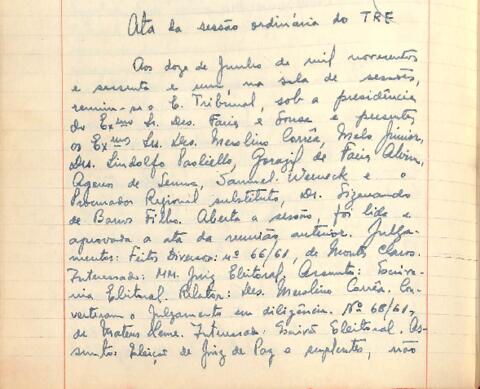 Ata da sessão ordinária do TRE
Aos doze de Junho de mil novecentos
e sessenta e um, na sala de sessões,
reuniu-se o E. Tribunal, sob a presidência
do Exmo Sr. Des. Faria e Sousa e presentes
os Exmos Srs. Des. Merolino Corrêa, Melo Júnior,
Drs. Lindolfo Paoliello, Gorazil de Faria Alvim,
Agenor de Senna, Samuel Werneck e o
Procurador Regional substituto, Dr. Sigmando
de Barros Filho. Aberta a sessão, foi lida e
aprovada a ata da reunião anterior. Julga-
mentos: Feitos Diversos: nº 66/61, de Montes Claros.
Interessado: MM. Juiz Eleitoral. Assunto: Escriva-
nia Eleitoral. Relator: Des. Merolino Corrêa. Con-
verteram o julgamento em diligência. Nº 68/61,
de Mateus Leme. Interessado: Escrivão Eleitoral. As-
sunto: Eleição de Juiz de Paz e suplentes, não